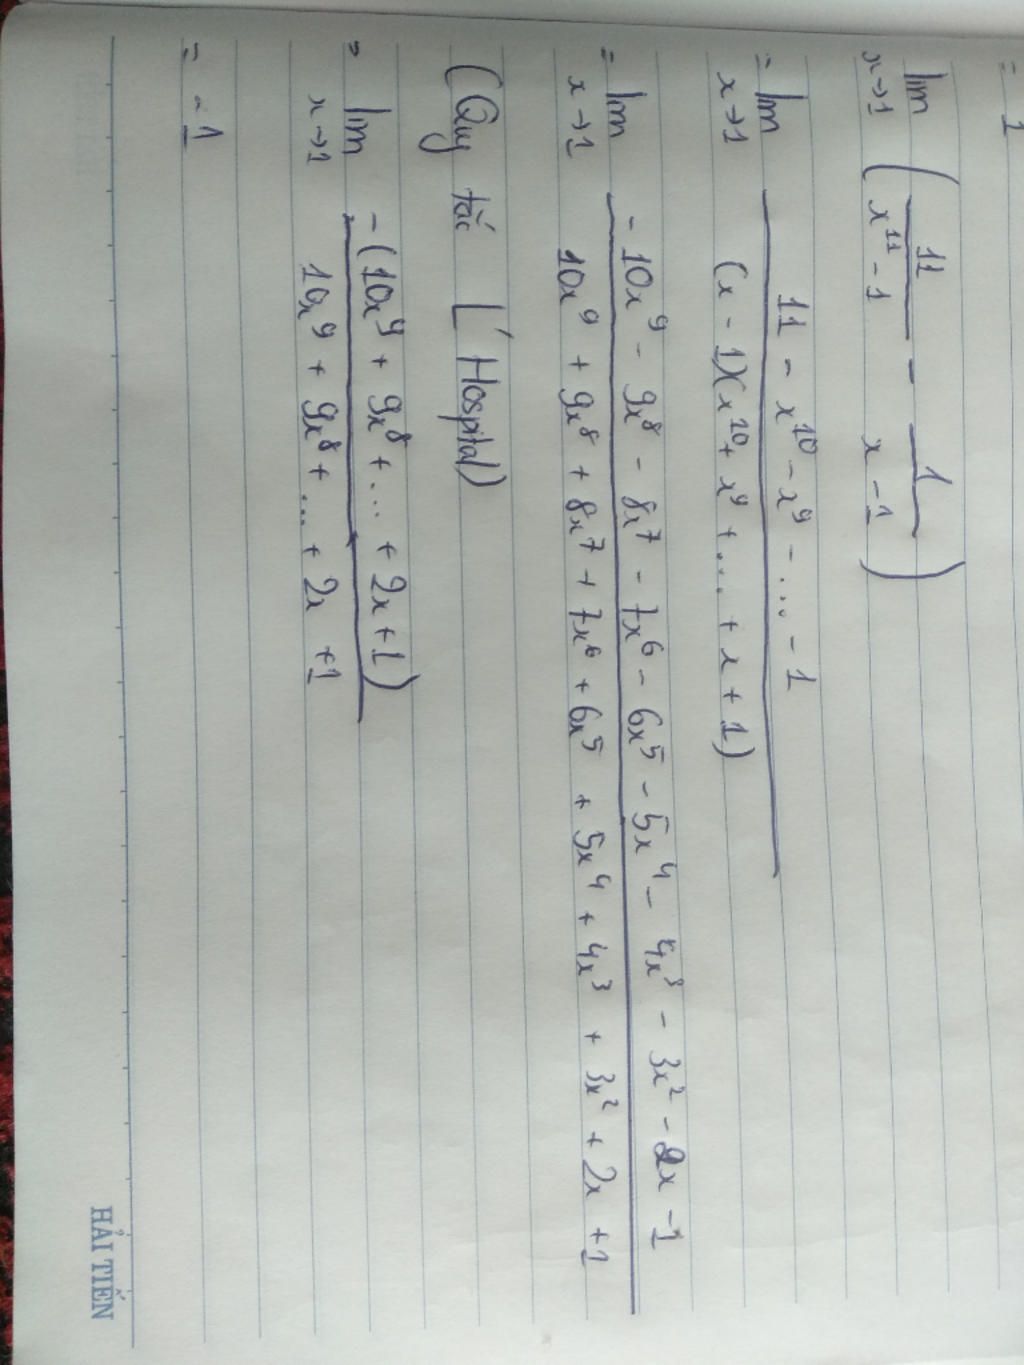 = 1
lim x→1 ( 11/(x^11 - 1) - 1/(x - 1) )
= lim x→1 (11 - x^10 - x^9 - ... - 1)/((x - 1)(x^10 + x^9 + ... + x + 1))
= lim x→1 (-10x^9 - 9x^8 - 8x^7 - 7x^6 - 6x^5 - 5x^4 - 4x^3 - 3x^2 - 2x - 1)/(10x^9 + 9x^8 + 8x^7 + 7x^6 + 6x^5 + 5x^4 + 4x^3 + 3x^2 + 2x + 1)
(Quy tắc L'Hospital)
= lim x→1 (-(10x^9 + 9x^8 + ... + 2x + 1))/(10x^9 + 9x^8 + ... + 2x + 1)
= -1
HẢI TIẾN